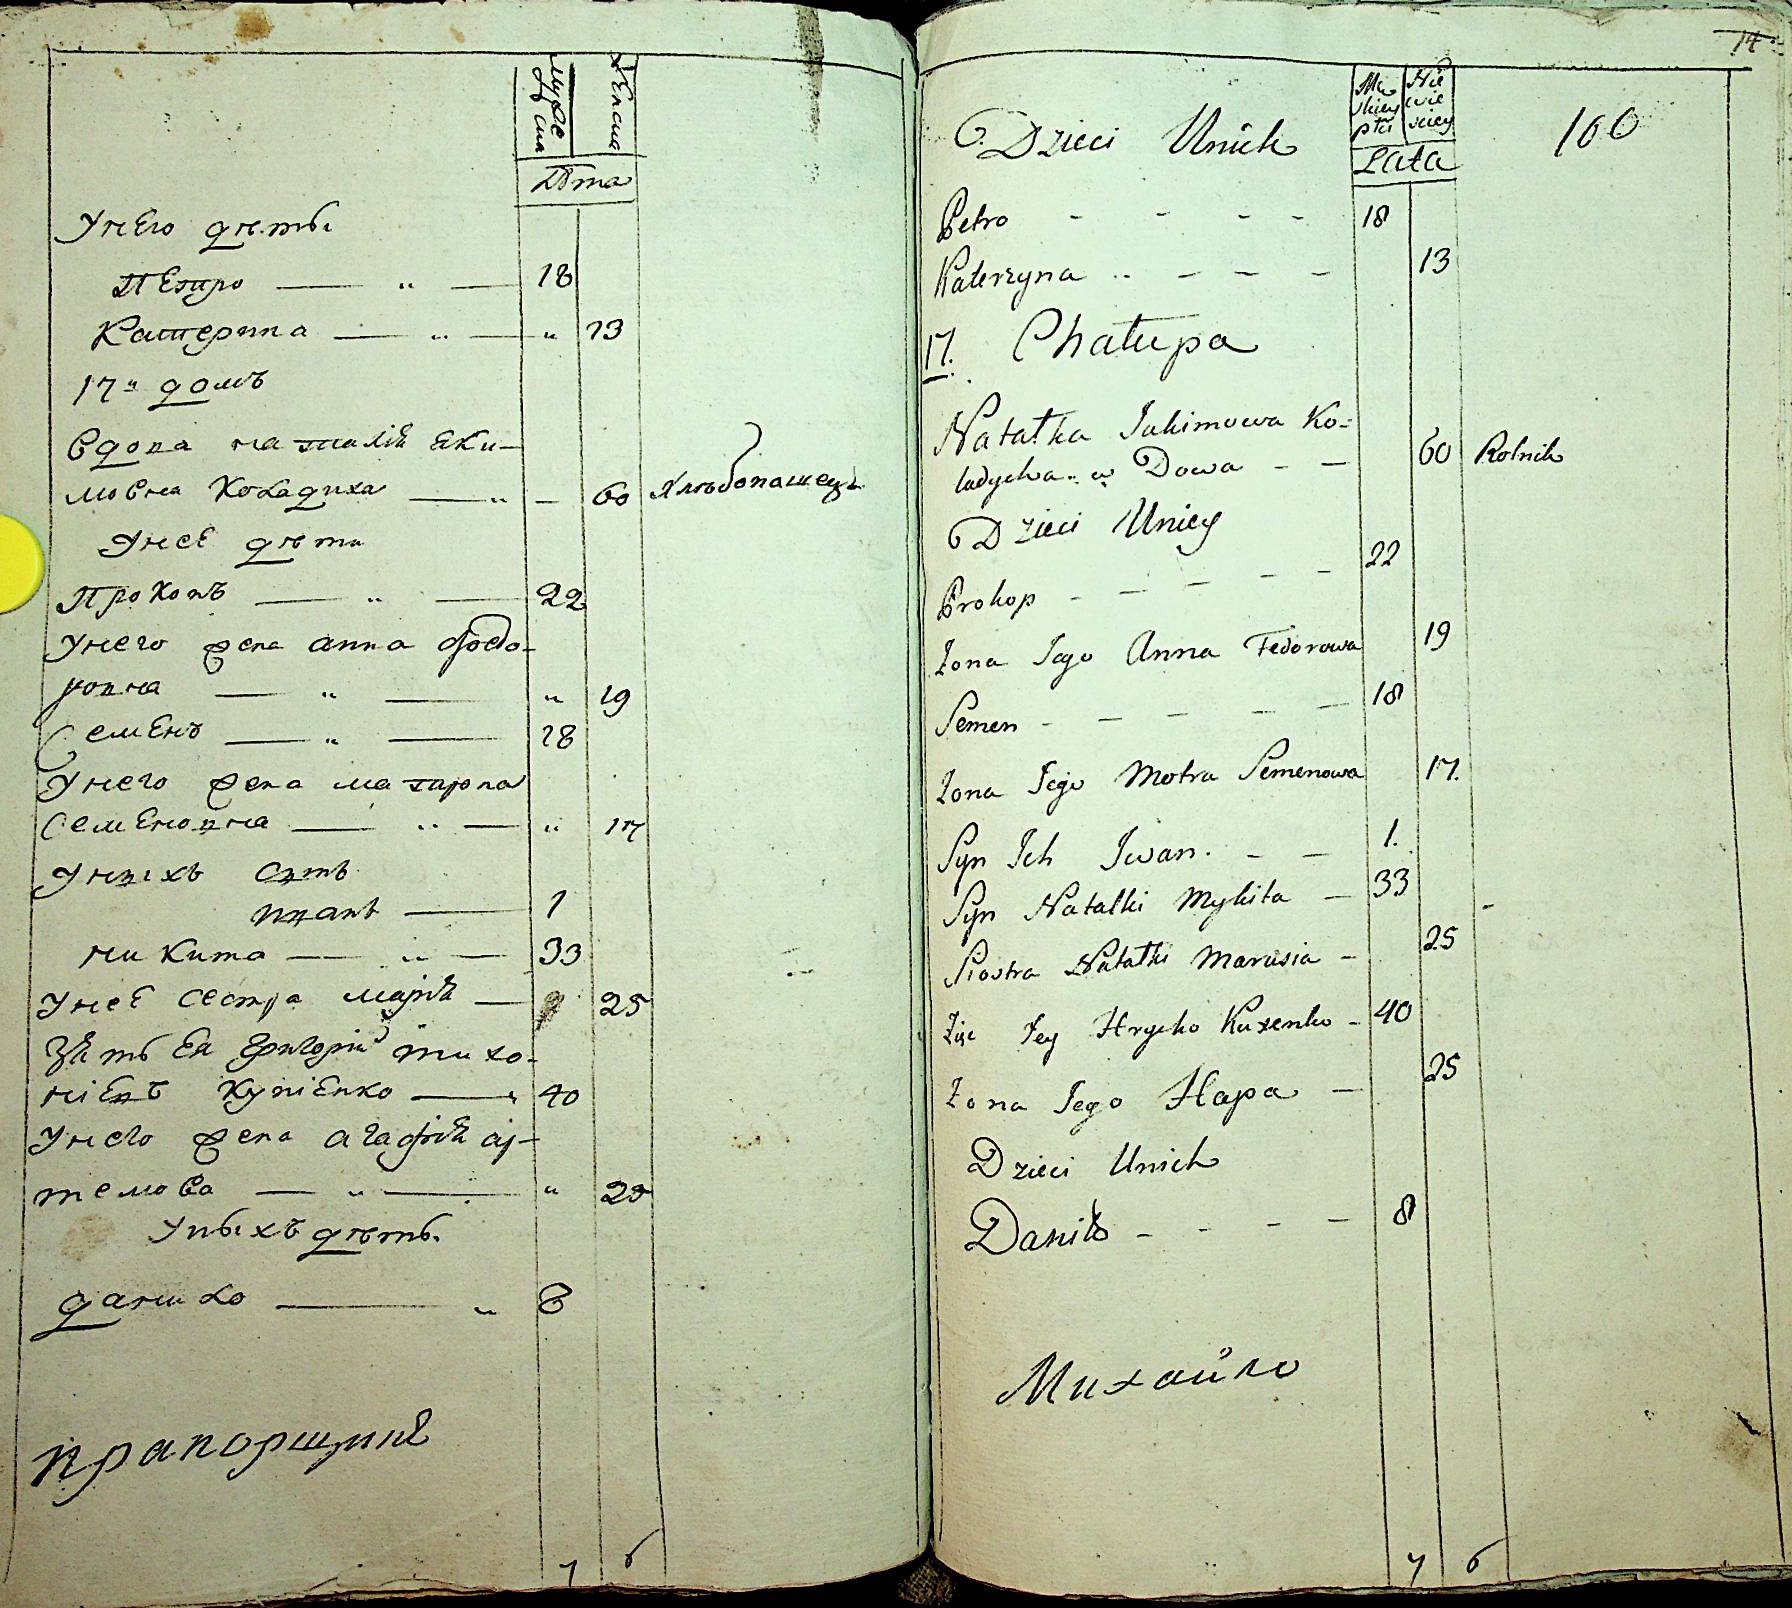 Мужеска
Женска
Лѣта
Унего дѣты
Петро — „ — 18
Катерина — „ — „ 13
17„ домъ
Вдова наталія аки-
мовна Коладиха — „ — 60 Хлѣбопашецъ
Унее дѣти
Прокопъ — „ — 22
Унего жена анна федо-
ровна — „ — „ 19
Семенъ — „ — 18
Унего жена матрона
Семеновна — „ — „ 17
Уныхъ сынъ
иванъ — 1
никита — „ — 33
Унее сестра марія — 25
Зять ея григорій тихо-
ніевъ — 40
Унего жена агафія ар-
темова — „ — „ 25
Уныхъ дѣты.
данило — „ 8
прапорщикъ
7 6
14
Męskiey płci
Niewieściey
Dzieci Unich
100
Lata
Petro - - - - 18
Katerzyna .. - - - 13
17. Chałupa
Natałka Jakimowa Ko=
ladycha .. w Dowa - - 60 Rolnik
Dzieci Uniey
Prokop - - - - - 22
Żona Jego Anna Fedorowa 19
Semen - - - - - 18
Żona Jego Motra Semenowa 17.
Syn Ich Iwan. - - 1.
Syn Natałki Mykita - 33
Siostra Natałki Marusia - 25
Zięć Jey Hrycko - 40
Żona Jego Hapa - 25
Dzieci Unich
Daniło - - - - 8
Михайло
7 6